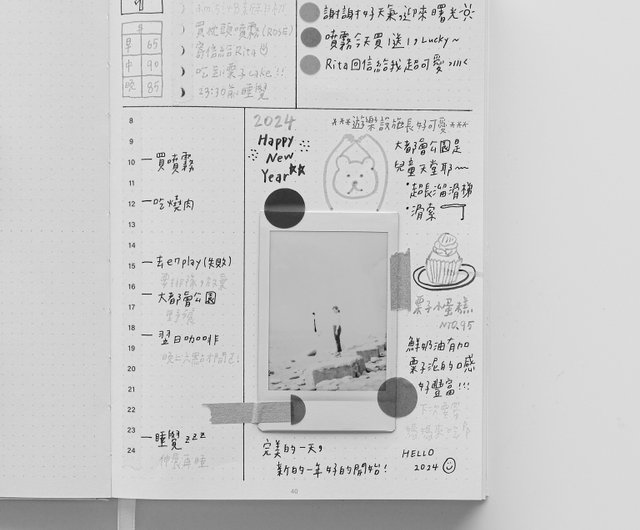 早 65
中 90
晚 85
買枕頭噴霧(ROSE)
寄信給Rita
吃到栗子cake!!
23:30前睡覺
謝謝好天氣,迎來曙光
噴霧今天買1送1,Lucky~
Rita回信給我超可愛
8
9
10 買噴霧
11
12 吃燒肉
13
14
15 去enplay(失敗)
16
17 大都會公園
18
19 翌日咖啡
20
21
22
23 睡覺zzz
24
2024
Happy
New
Year
***遊樂設施長好可愛***
大都會公園是
兒童天堂耶~
•超長溜滑梯
•滑索
栗子小蛋糕
NTD.95
鮮奶油有加
栗子泥的口感
好豐富!!!
完美的一天,
新的一年好的開始!
HELLO
2024
40